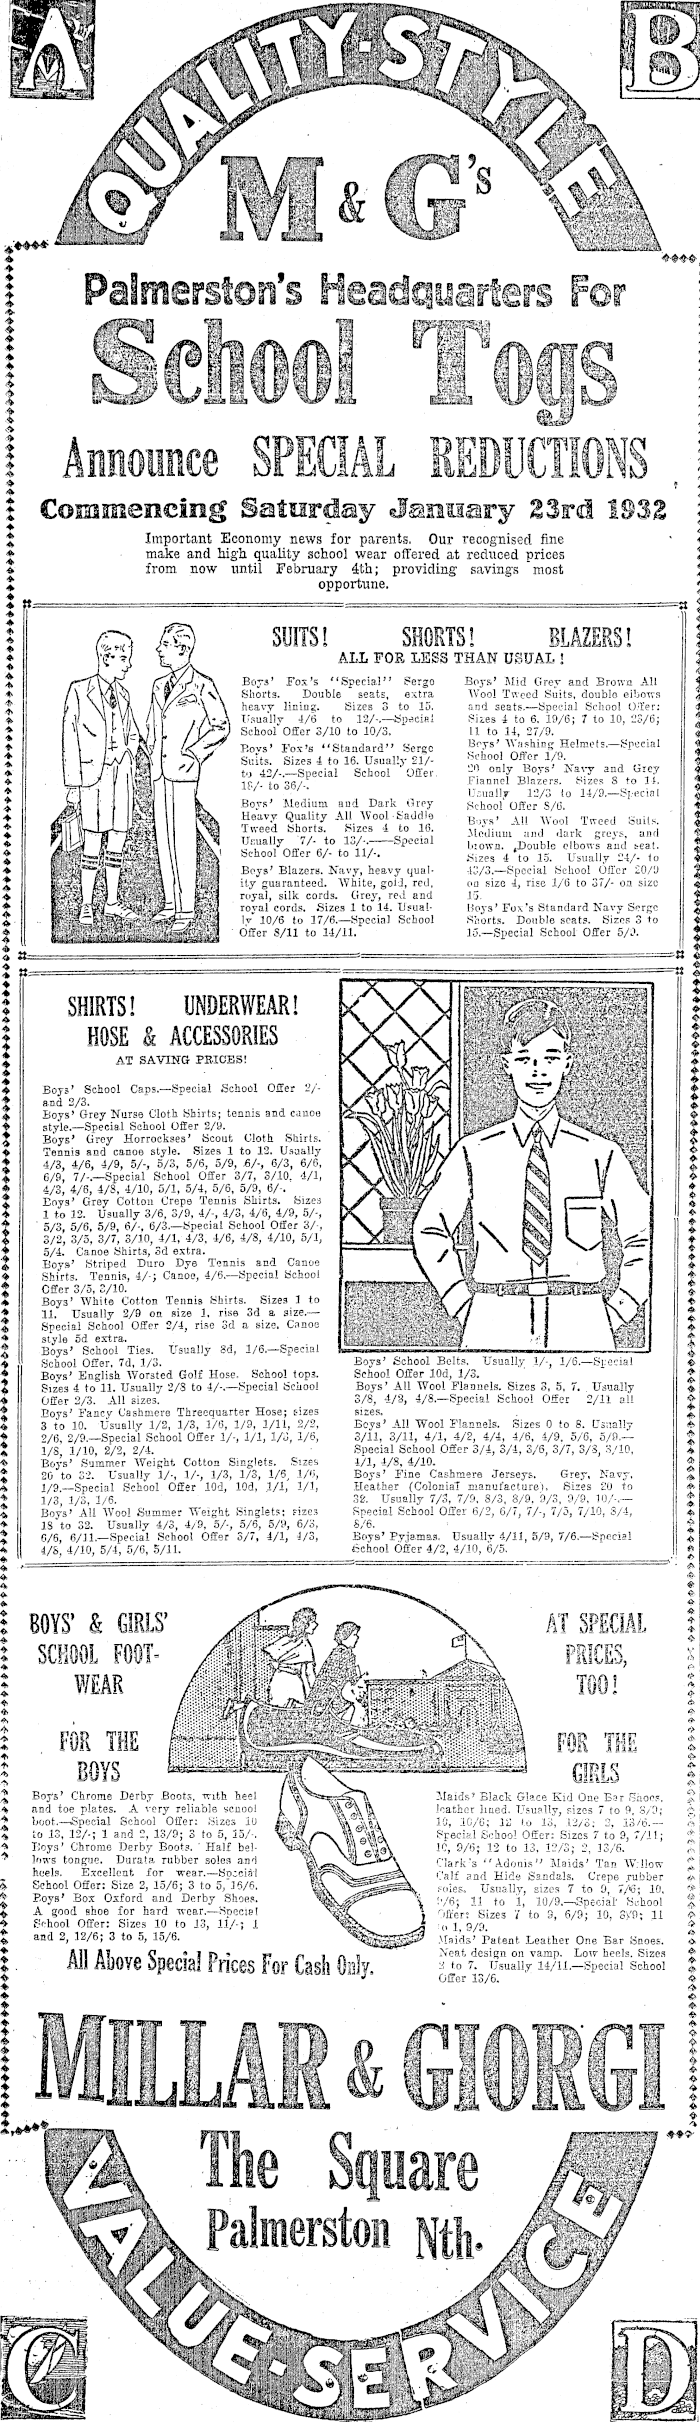 A
B
QUALITY-STYLE
M & G's
Palmerston's Headquarters For
School Togs
Announce SPECIAL REDUCTIONS
Commencing Saturday January 23rd 1932
Important Economy news for parents. Our recognised fine
make and high quality school wear offered at reduced prices
from now until February 4th; providing savings most
opportune.
SUITS! SHORTS! BLAZERS!
ALL FOR LESS THAN USUAL!
Boys' Fox's "Special" Serge
Shorts. Double seats, extra
heavy lining. Sizes 3 to 15.
Usually 4/6 to 12/-.—Special
School Offer 3/10 to 10/3.
Boys' Fox's "Standard" Serge
Suits. Sizes 4 to 16. Usually 21/-
to 42/-.—Special School Offer
18/- to 36/-.
Boys' Medium and Dark Grey
Heavy Quality All Wool Saddle
Tweed Shorts. Sizes 4 to 16.
Usually 7/- to 13/-.—Special
School Offer 6/- to 11/-.
Boys' Blazers. Navy, heavy qual-
ity guaranteed. White, gold, red,
royal, silk cords. Grey, red and
royal cords. Sizes 1 to 14. Usual-
ly 10/6 to 17/6.—Special School
Offer 8/11 to 14/11.
Boys' Mid Grey and Brown All
Wool Tweed Suits, double elbows
and seats.—Special School Offer:
Sizes 4 to 6, 19/6; 7 to 10, 23/6;
11 to 14, 27/9.
Boys' Washing Helmets.—Special
School Offer 1/9.
20 only Boys' Navy and Grey
Flannel Blazers. Sizes 8 to 14.
Usually 12/3 to 14/9.—Special
School Offer 8/6.
Boys' All Wool Tweed Suits.
Medium and dark greys, and
brown. Double elbows and seat.
Sizes 4 to 15. Usually 24/- to
43/3.—Special School Offer 20/9
on size 4, rise 1/6 to 37/- on size
15.
Boys' Fox's Standard Navy Serge
Shorts. Double seats. Sizes 3 to
15.—Special School Offer 5/9.
SHIRTS! UNDERWEAR!
HOSE & ACCESSORIES
AT SAVING PRICES!
Boys' School Caps.—Special School Offer 2/-
and 2/3.
Boys' Grey Nurse Cloth Shirts; tennis and canoe
style.—Special School Offer 2/9.
Boys' Grey Horrockses' Scout Cloth Shirts.
Tennis and canoe style. Sizes 1 to 12. Usually
4/3, 4/6, 4/9, 5/-, 5/3, 5/6, 5/9, 6/-, 6/3, 6/6,
6/9, 7/-.—Special School Offer 3/7, 3/10, 4/1,
4/3, 4/6, 4/8, 4/10, 5/1, 5/4, 5/6, 5/9, 6/-.
Boys' Grey Cotton Crepe Tennis Shirts. Sizes
1 to 12. Usually 3/6, 3/9, 4/-, 4/3, 4/6, 4/9, 5/-,
5/3, 5/6, 5/9, 6/-, 6/3.—Special School Offer 3/-,
3/2, 3/5, 3/7, 3/10, 4/1, 4/3, 4/6, 4/8, 4/10, 5/1,
5/4. Canoe Shirts, 3d extra.
Boys' Striped Duro Dye Tennis and Canoe
Shirts. Tennis, 4/-; Canoe, 4/6.—Special School
Offer 3/5, 3/10.
Boys' White Cotton Tennis Shirts. Sizes 1 to
11. Usually 2/9 on size 1, rise 3d a size.—
Special School Offer 2/4, rise 3d a size. Canoe
style 5d extra.
Boys' School Ties. Usually 8d, 1/6.—Special
School Offer, 7d, 1/3.
Boys' English Worsted Golf Hose. School tops.
Sizes 4 to 11. Usually 2/8 to 4/-.—Special School
Offer 2/3. All sizes.
Boys' Fancy Cashmere Threequarter Hose; sizes
3 to 10. Usually 1/2, 1/3, 1/6, 1/9, 1/11, 2/2,
2/6, 2/9.—Special School Offer 1/-, 1/1, 1/3, 1/6,
1/8, 1/10, 2/2, 2/4.
Boys' Summer Weight Cotton Singlets. Sizes
20 to 32. Usually 1/-, 1/-, 1/3, 1/3, 1/6, 1/6,
1/9.—Special School Offer 10d, 10d, 1/1, 1/1,
1/3, 1/3, 1/6.
Boys' All Wool Summer Weight Singlets; sizes
18 to 32. Usually 4/3, 4/9, 5/-, 5/6, 5/9, 6/3,
6/6, 6/11.—Special School Offer 3/7, 4/1, 4/3,
4/8, 4/10, 5/4, 5/6, 5/11.
Boys' School Belts. Usually 1/-, 1/6.—Special
School Offer 10d, 1/3.
Boys' All Wool Flannels. Sizes 3, 5, 7. Usually
3/8, 4/3, 4/8.—Special School Offer 2/11 all
sizes.
Boys' All Wool Flannels. Sizes 0 to 8. Usually
3/11, 3/11, 4/1, 4/2, 4/4, 4/6, 4/9, 5/6, 5/9.—
Special School Offer 3/4, 3/4, 3/6, 3/7, 3/8, 3/10,
4/1, 4/8, 4/10.
Boys' Fine Cashmere Jerseys. Grey, Navy,
Heather (Colonial manufacture). Sizes 20 to
32. Usually 7/3, 7/9, 8/3, 8/9, 9/3, 9/9, 10/-.—
Special School Offer 6/2, 6/7, 7/-, 7/5, 7/10, 8/4,
8/6.
Boys' Pyjamas. Usually 4/11, 5/9, 7/6.—Special
School Offer 4/2, 4/10, 6/5.
BOYS' & GIRLS'
SCHOOL FOOT-
WEAR
AT SPECIAL
PRICES,
TOO!
FOR THE
BOYS
Boys' Chrome Derby Boots, with heel
and toe plates. A very reliable school
boot.—Special School Offer: Sizes 10
to 13, 12/-; 1 and 2, 13/9; 3 to 5, 15/-.
Boys' Chrome Derby Boots. Half bel-
lows tongue. Durata rubber soles and
heels. Excellent for wear.—Special
School Offer: Size 2, 15/6; 3 to 5, 16/6.
Boys' Box Oxford and Derby Shoes.
A good shoe for hard wear.—Special
School Offer: Sizes 10 to 13, 11/-; 1
and 2, 12/6; 3 to 5, 15/6.
FOR THE
GIRLS
Maids' Black Glace Kid One Bar Shoes,
leather lined. Usually, sizes 7 to 9, 8/9;
10, 10/6; 12 to 13, 12/3; 2, 13/6.—
Special School Offer: Sizes 7 to 9, 7/11;
10, 9/6; 12 to 13, 12/3; 2, 13/6.
Clark's "Adonis" Maids' Tan Willow
Calf and Hide Sandals. Crepe rubber
soles. Usually, sizes 7 to 9, 7/6; 10,
9/6; 11 to 1, 10/9.—Special School
Offer: Sizes 7 to 9, 6/9; 10, 8/9; 11
to 1, 9/9.
Maids' Patent Leather One Bar Shoes.
Neat design on vamp. Low heels. Sizes
2 to 7. Usually 14/11.—Special School
Offer 13/6.
All Above Special Prices For Cash Only.
MILLAR & GIORGI
The Square
Palmerston Nth.
VALUE-SERVICE
C
D